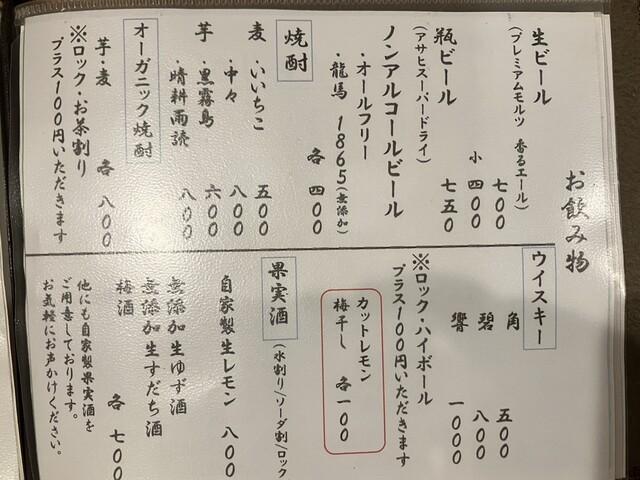 お飲み物
生ビール
(プレミアムモルツ 香るエール)
七〇〇
小 四〇〇
瓶ビール 七五〇
(アサヒスーパードライ)
ノンアルコールビール
・オールフリー
・龍馬 1865(無添加)
各 四〇〇
焼酎
麦 ・いいちこ 五〇〇
・中々 八〇〇
芋 ・黒霧島 六〇〇
・晴耕雨読 八〇〇
オーガニック焼酎
芋・麦 各 八〇〇
※ロック・お茶割り
プラス100円いただきます
ウイスキー
角 五〇〇
碧 八〇〇
響 一〇〇〇
※ロック・ハイボール
プラス100円いただきます
カットレモン
梅干し 各一〇〇
果実酒
(水割り/ソーダ割/ロック
自家製生レモン 八〇〇
無添加生ゆず酒
無添加生すだち酒
梅酒 各 七〇〇
他にも自家製果実酒を
ご用意しております。
お気軽にお声かけください。